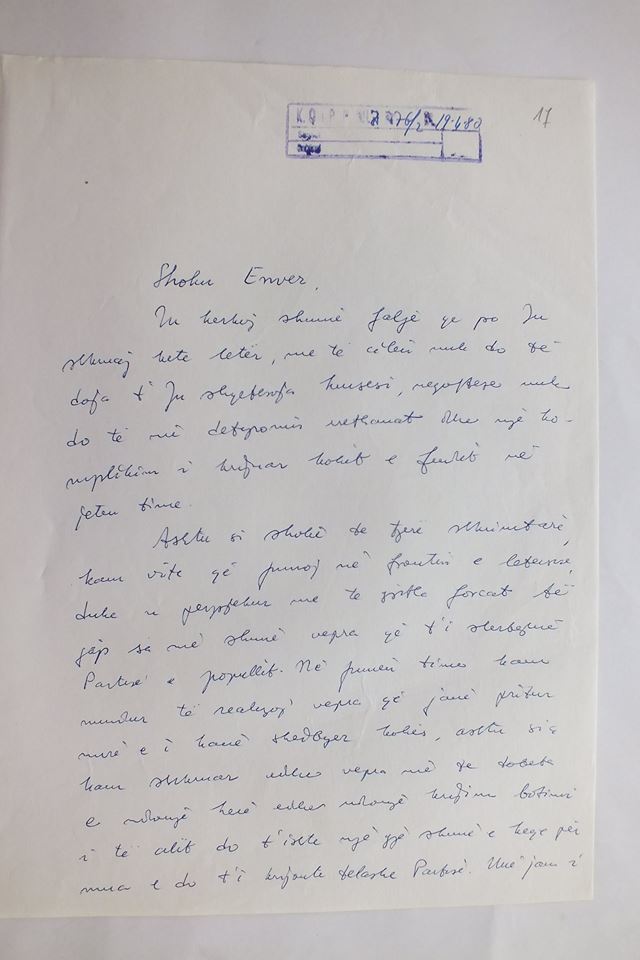 17
276/2 19.4.80
Shoku Enver,
Ju kerkoj shumë falje qe po Ju
shkruaj kete letër, me të cilën nuk do të
doja t'Ju shqetesoja kurrsesi, megjithese nuk
do të më detyronin rrethanat dhe një ko-
mplikim i krijuar kohët e fundit në
jeten time.
Ashtu si shokë te tjerë shkrimtarë,
kam vite që punoj në frontin e letersise,
duke u perpjekur me te gjitha forcat të
jap sa më shumë vepra që t'i sherbejnë
Partisë e popullit. Në punën time kam
mundur të realizoj vepra që janë pritur
mirë e i kanë sherbyer kohës, ashtu siç
kam shkruar edhe vepra më te dobeta
e ndonjë herë edhe ndonjë krijim botimi
i të cilit do t'ishte një gjë shumë e keqe për
mua e do t'i krijonte telashe Partisë. Unë jam i